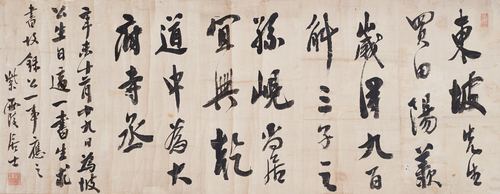 東坡先生
買田陽羨
歲得九百
斛三子之
孫峴尚居
宜興乾
道中為大
府寺丞
辛未十二月十九日為坡
公生日適一書生求
書坡錄公一事應之
紫霞居士